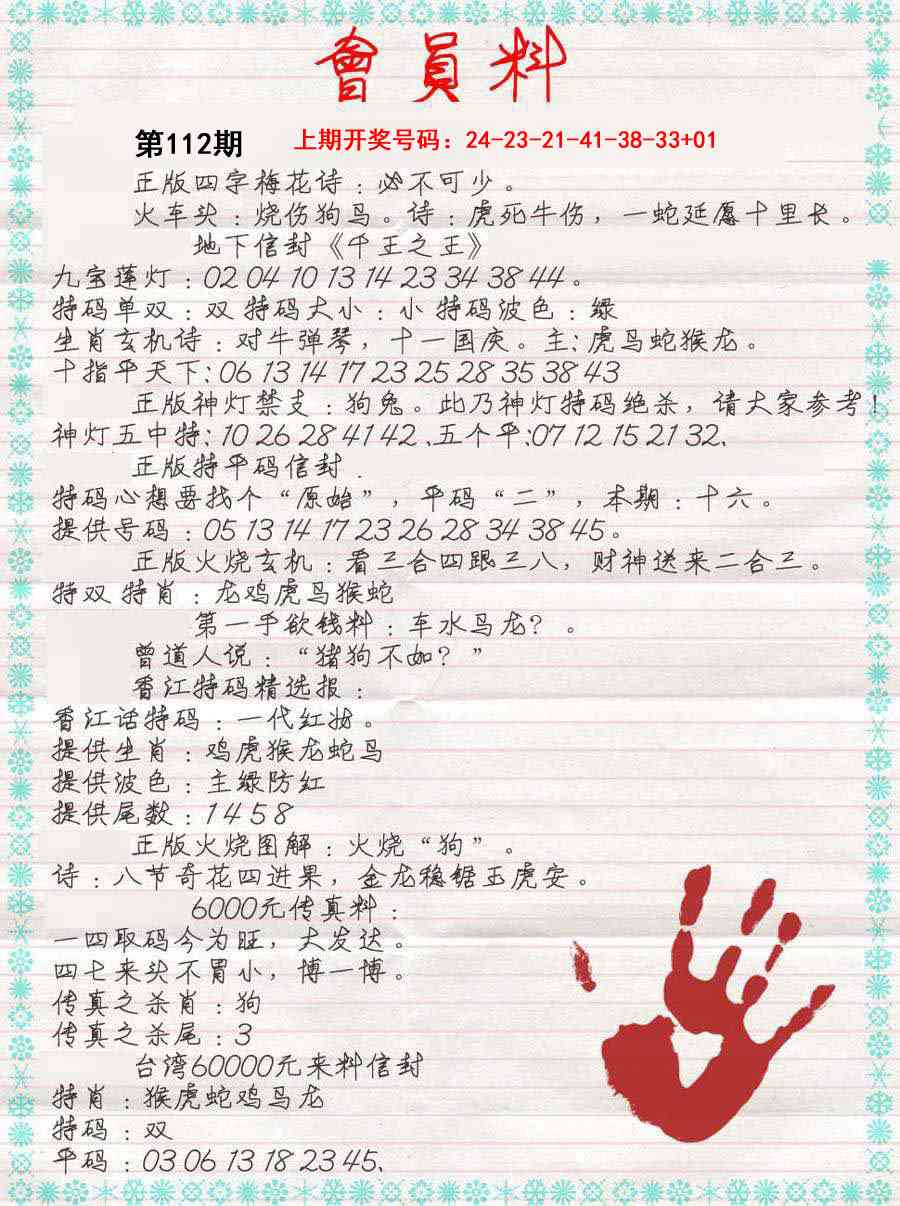 會員料
第112期 上期开奖号码：24-23-21-41-38-33+01
正版四字梅花诗：必不可少。
火车头：烧伤狗鸟。诗：虎死牛伤，一蛇延愿十里长。
地下信封《千王之王》
九宝莲灯：02 04 10 13 14 23 34 38 44。
特码单双：双 特码大小：小 特码波色：绿
生肖玄机诗：对牛弹琴，十一国庆。主：虎马蛇猴龙。
十指平天下：06 13 14 17 23 25 28 35 38 43
正版神灯禁支：狗兔。此乃神灯特码绝杀，请大家参考！
神灯五中特：10 26 28 41 42、五个平：07 12 15 21 32、
正版特平码信封．
特码心想要找个“原始”，平码“二”，本期：十六。
提供号码：05 13 14 17 23 26 28 34 38 45。
正版火烧玄机：看三合四跟三八，财神送来二合三。
特双 特肖：龙鸡虎马猴蛇
第一手欲钱料：车水马龙？。
曾道人说：“猪狗不如？”
香江特码精选报：
香江话特码：一代红妆。
提供生肖：鸡虎猴龙蛇马
提供波色：主绿防红
提供尾数：1 4 5 8
正版火烧图解：火烧“狗”。
诗：八节奇花四进果，金龙稳锯玉虎安。
6000元传真料：
一四取码今为旺，大发达。
四七来头不胃小，博一博。
传真之杀肖：狗
传真之杀尾：3
台湾60000元来料信封
特肖：猴虎蛇鸡马龙
特码：双
平码：03 06 13 18 23 45、